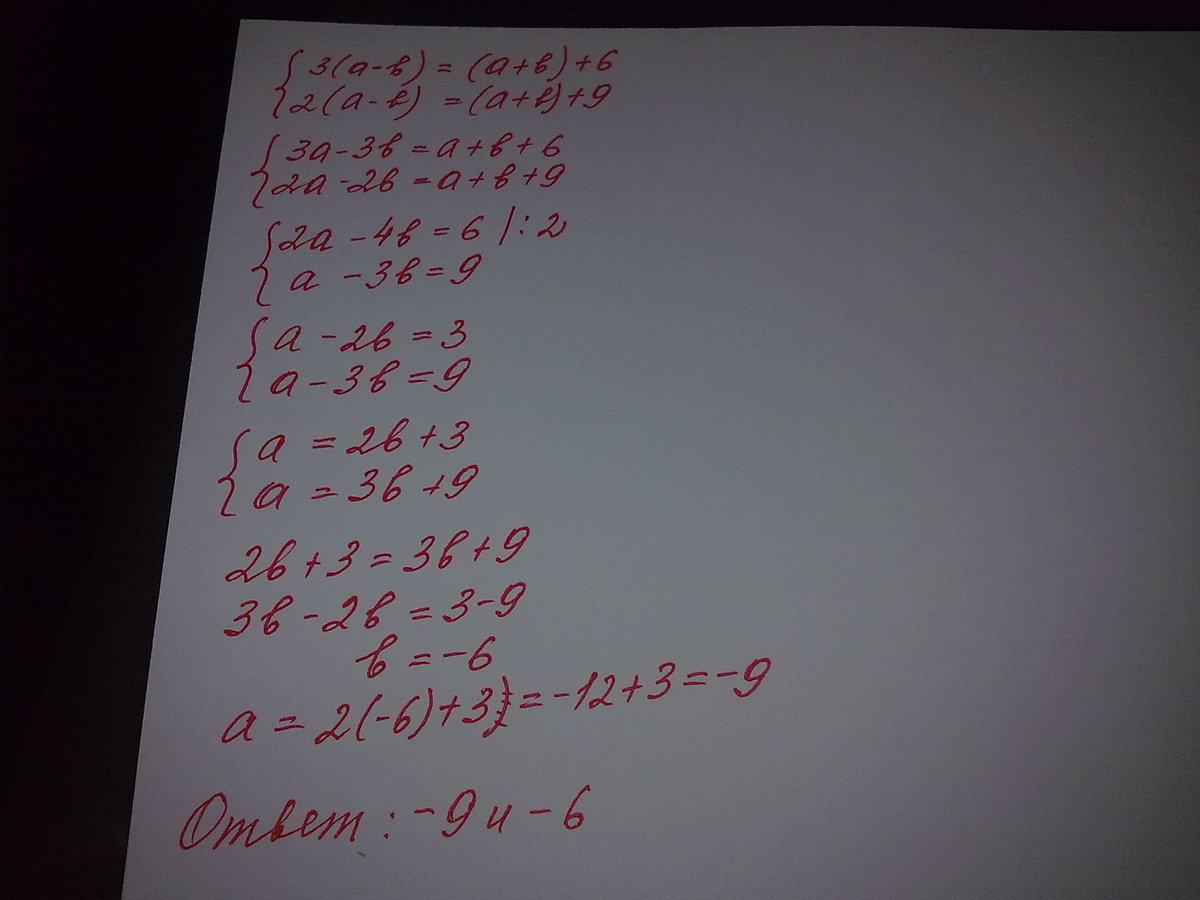 { 3(a-в) = (a+в)+6
2(a-в) = (a+в)+9
{ 3a-3в = a+в+6
2a-2в = a+в+9
{ 2a-4в = 6 |:2
a-3в = 9
{ a-2в = 3
a-3в = 9
{ a = 2в+3
a = 3в+9
2в+3 = 3в+9
3в-2в = 3-9
в = -6
a = 2(-6)+3 = -12+3 = -9
Ответ: -9 и -6